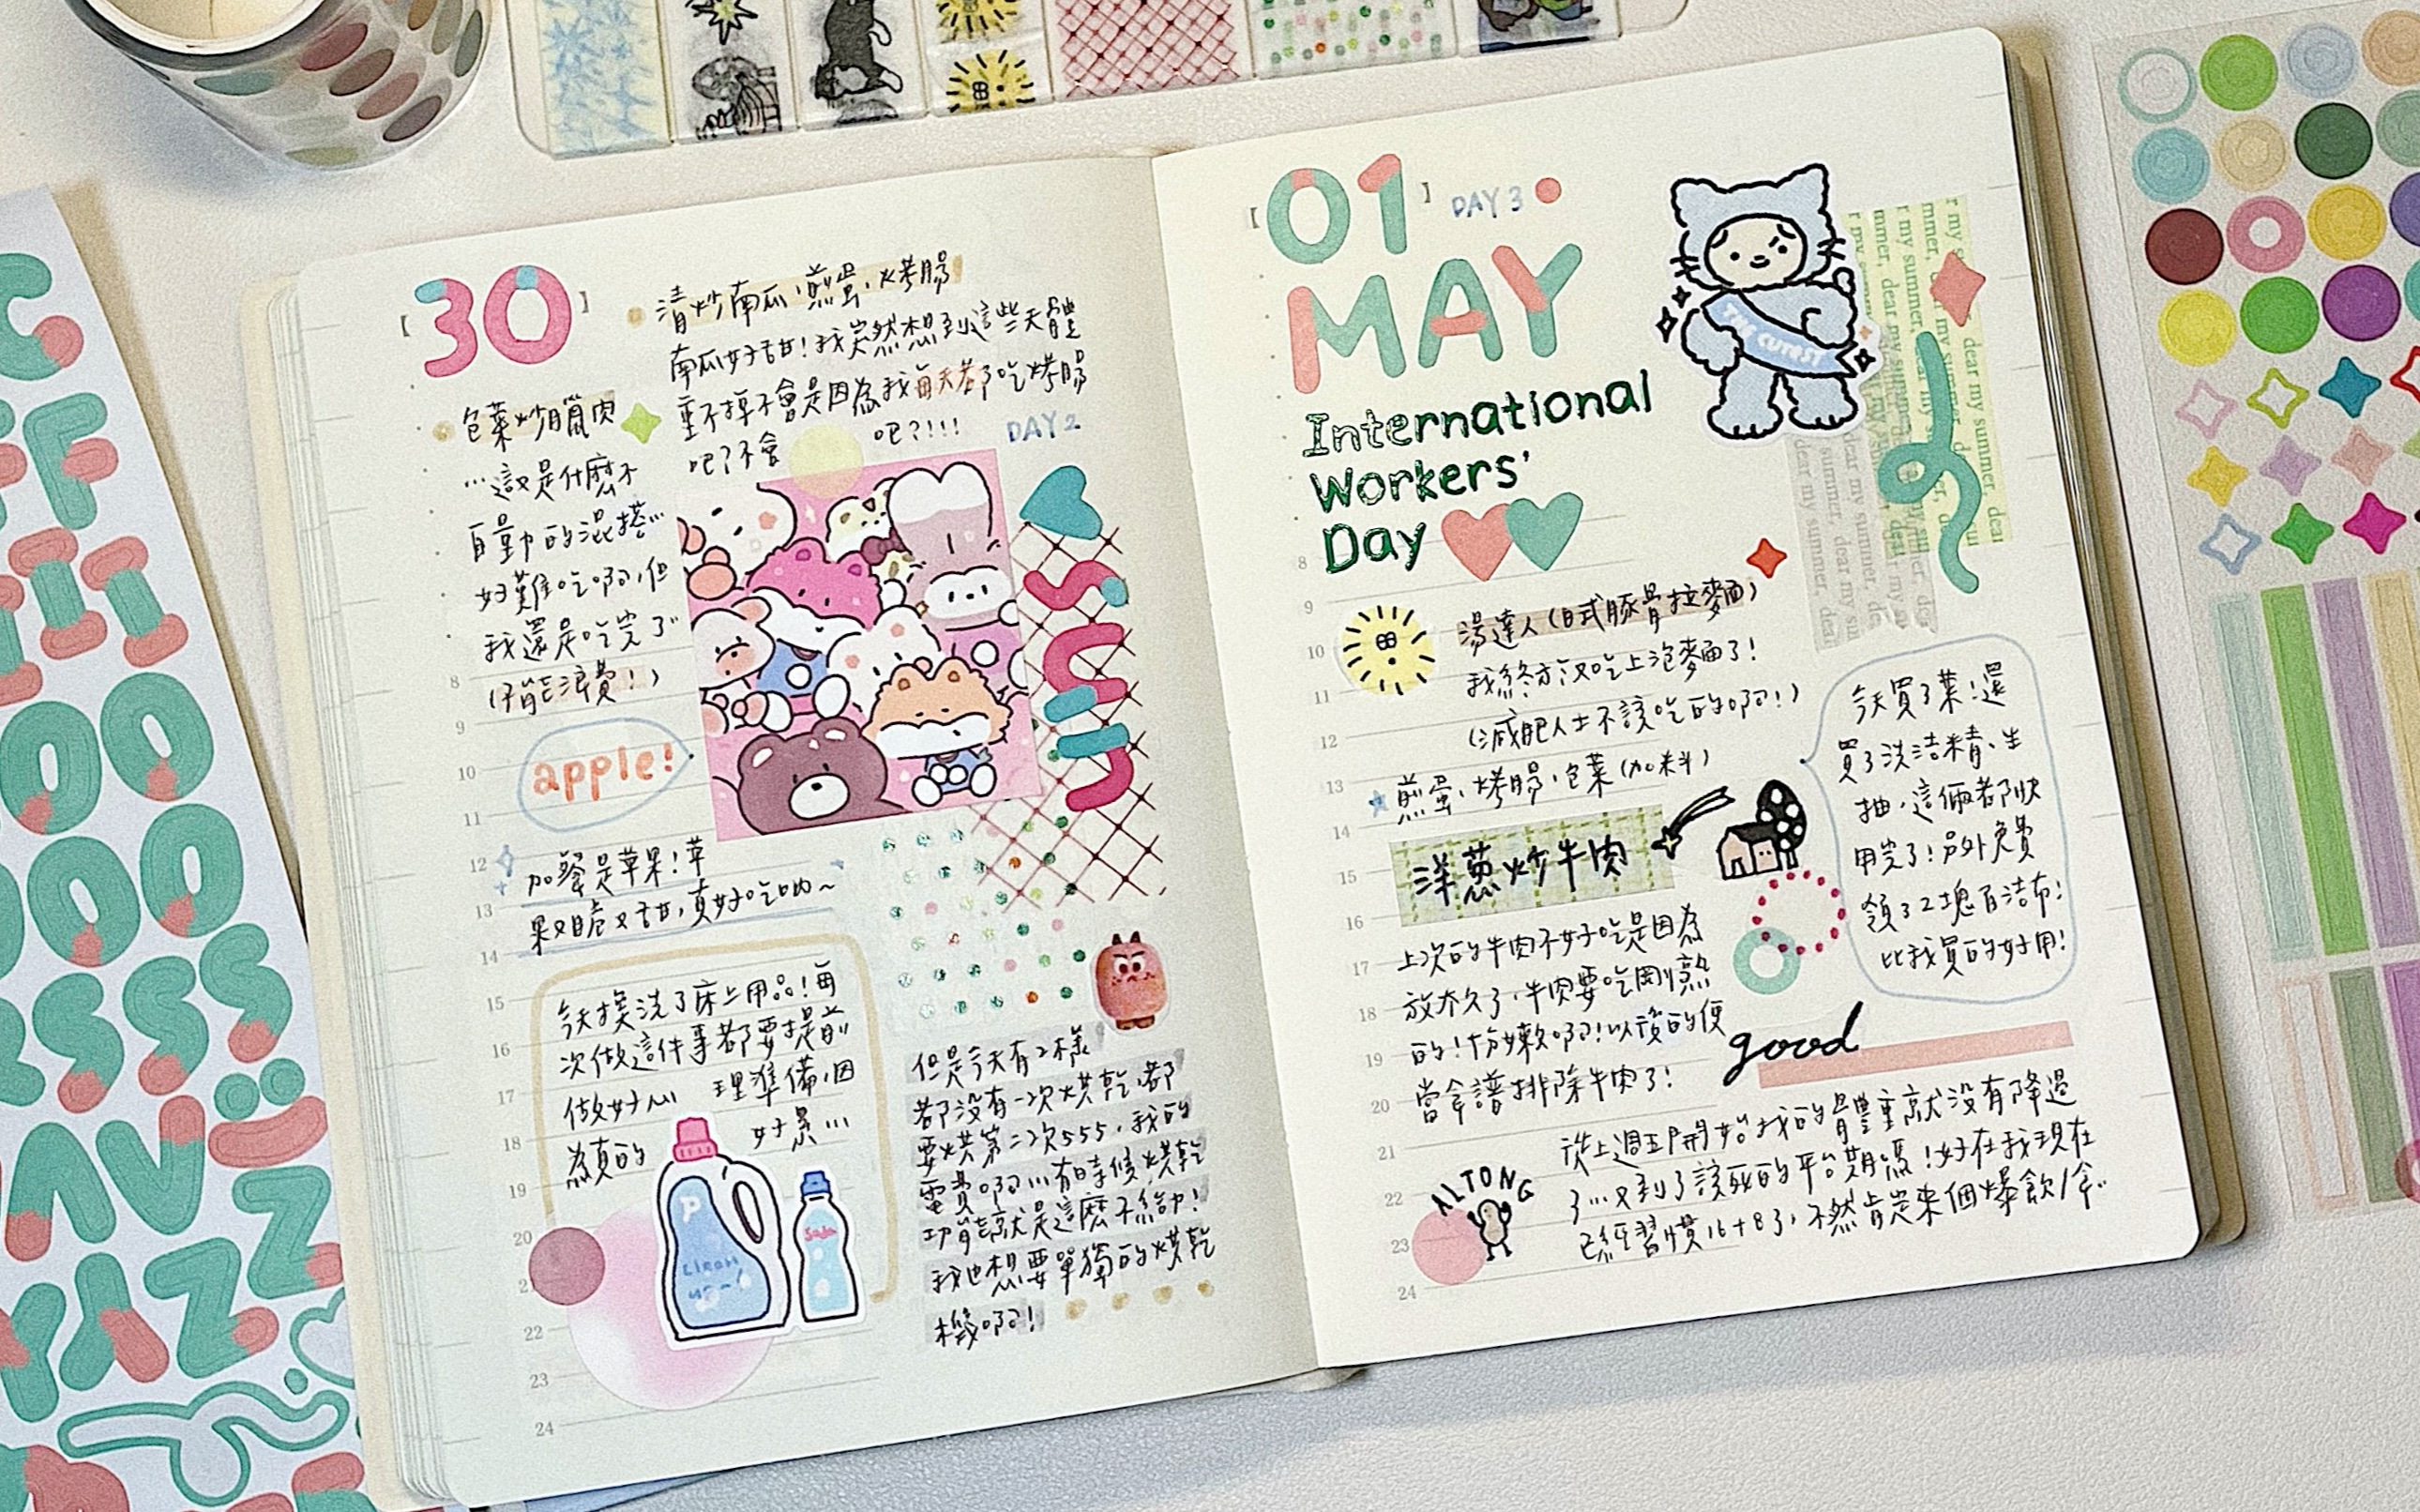 30
清炒南瓜、煎蛋、烤腸
南瓜好甜！我突然想到這些天體
重不掉不會是因為我每天都吃烤腸
吧？不會
吧？!!!
DAY 2
包菜炒臘肉
…這是什麼不
自量力的混搭…
好難吃啊，但
我還是吃完了
（不能浪費！）
apple!
加餐是苹果！苹
果又脆又甜，真好吃呦~
今天換洗了床上用品！每
次做這件事都要提前
做好心理準備，因
為真的好累…
Clean
up~!
但是今天有2樣
都没有一次烘乾，都
要烘第二次555，我的
電費啊…有時候烘乾
功能就是這麼不給力！
我也想要單獨的烘乾
機啊！
01
MAY
DAY 3
International
Workers'
Day
THE CUTEST
dear my summer,
湯達人（日式豚骨拉麵）
我終於又吃上泡麵了！
（減肥人士不該吃的啊！）
煎蛋、烤腸、包菜（加料）
洋蔥炒牛肉
上次的牛肉不好吃是因為
放太久了，牛肉要吃剛熟
的！十分嫩啊！以後的便
當食譜排除牛肉了！
今天買了菜！還
買了洗洁精、生
抽，這倆都快
用完了！另外免費
領了2塊百洁布！
比我買的好用！
good
從上週五開始我的體重就没有降過
了…又到了該死的平台期嗎！好在我現在
已經習慣16+8了，不然肯定來個爆飲/食..
ALTONG
8
9
10
11
12
13
14
15
16
17
18
19
20
21
22
23
24
8
9
10
11
12
13
14
15
16
17
18
19
20
21
22
23
24